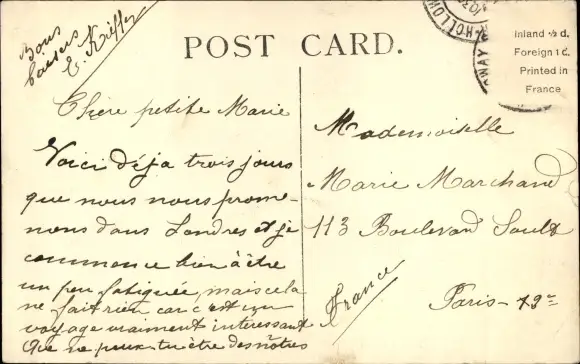 Bons
baisers
E.
POST CARD.
HOLLOWAY
Inland ½ d.
Foreign 1 d.
Printed in
France
Chère petite Marie
Voici déja trois jours
que nous nous prome-
nons dans Londres et je
commence bien à être
un peu fatiguée, mais cela
ne fait rien, car c'est un
voyage vraiment interessant
Que ne peux-tu être des nôtres
Mademoiselle
Marie Marchand
113 Boulevard Soult
Paris - 12e
France